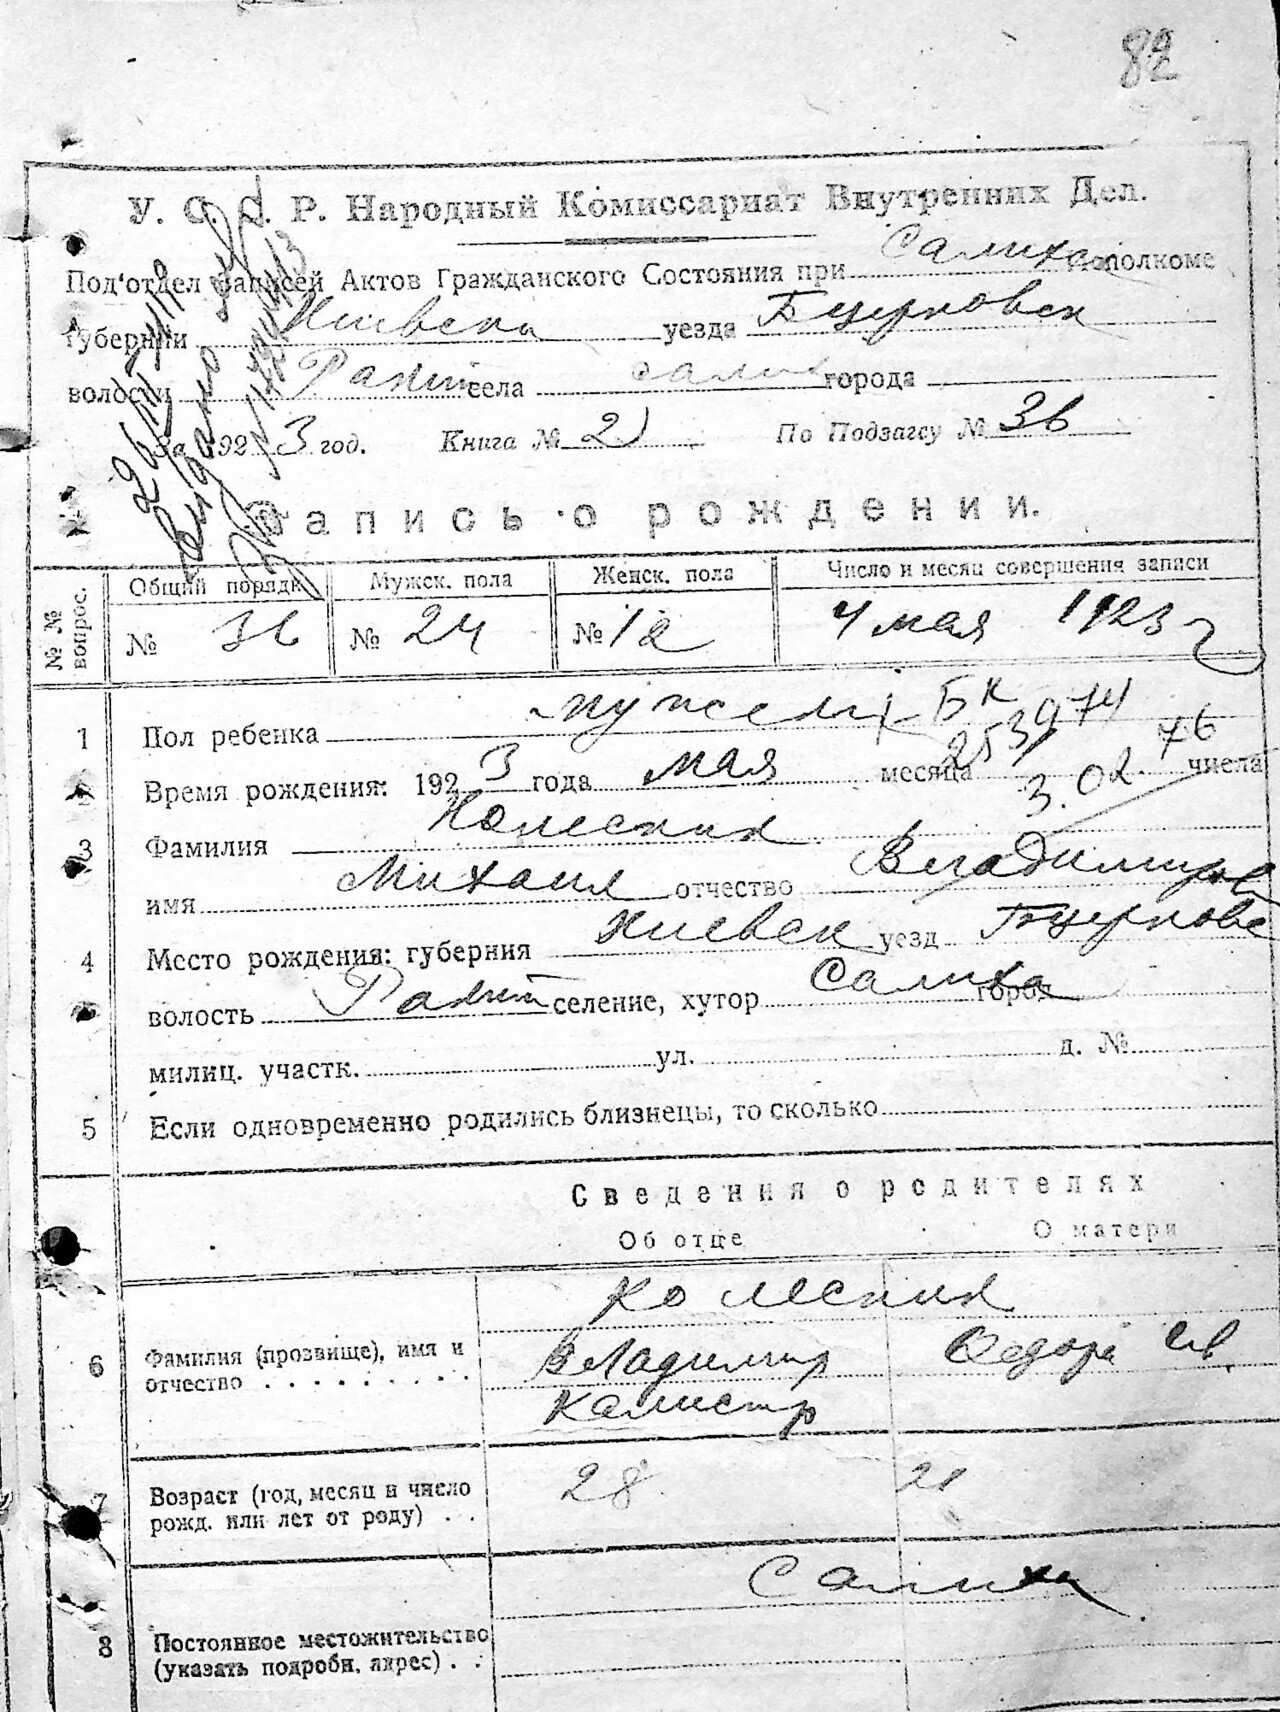 82
У. С. С. Р. Народный Комиссариат Внутренних Дел.
Под'отдел записей Актов Гражданского Состояния при Салиха Исполкоме
губернии Киевск уезда Бцерковск
волости Ракит села Салих города
за 1923 год. Книга № 2 По Подзагсу № 36
Запись о рождении.
№№ вопрос.
Общий поряд. Мужск. пола Женск. пола Число и месяц совершения записи
№ 36 № 24 № 12 4 мая 1923 г
1 Пол ребенка мужской БК
253974
Время рождения: 1923 года мая месяца числа
3.02.76
3 Фамилия Колесник
имя Михаил отчество Владимиров
4 Место рождения: губерния Киевск уезд Бцерковс
волость Ракит селение, хутор Салиха город
милиц. участк. ул. д. №
5 Если одновременно родились близнецы, то сколько
Сведения о родителях
Об отце О матери
Колесник
6 Фамилия (прозвище), имя и
отчество . . . . . . . . .
Владимир Федора
Калистр
7 Возраст (год, месяц и число
рожд. или лет от роду) . .
28 21
Салиха
8 Постоянное местожительство
(указать подробн. адрес) . .